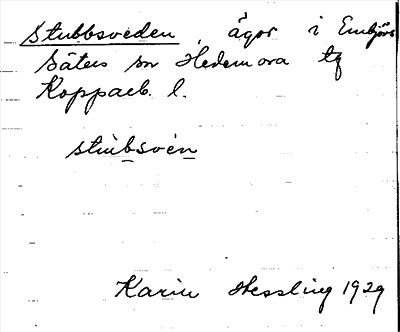 Stubbsveden, ägor i Embjörs
Säters sn Hedemora tg
Koppaeb. l.
stùbsvén
Karin Hessling 1929